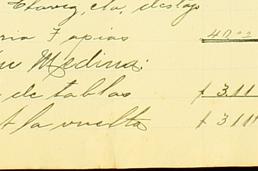 Chavez, cta, destajo
7 apias 40.00
Medina:
de tablas $ 3.11
A la vuelta $ 3.11